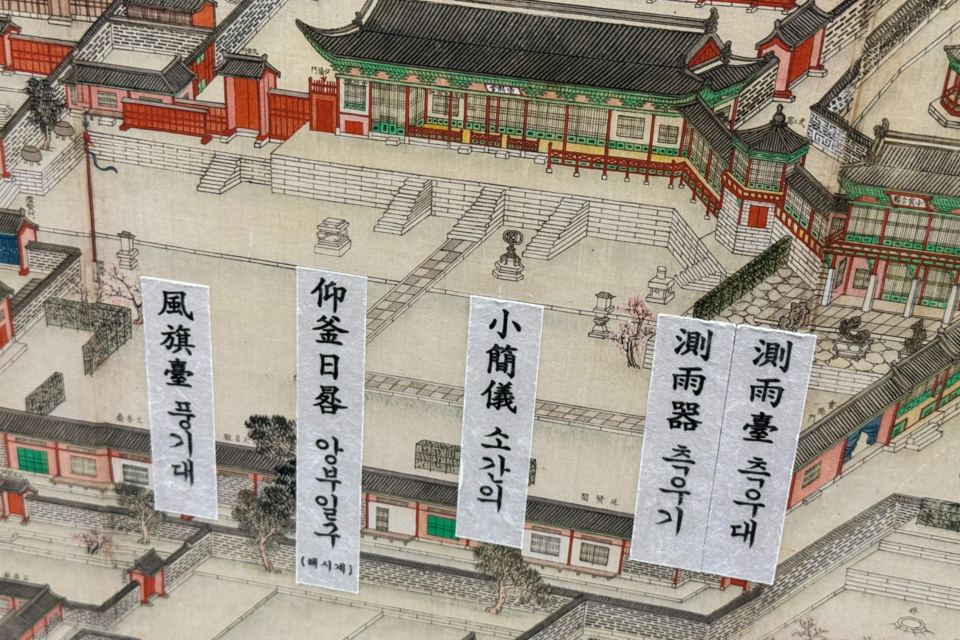 風旗臺 풍기대
仰釜日晷 앙부일구
(해시계)
小簡儀 소간의
測雨器 측우기
測雨臺 측우대